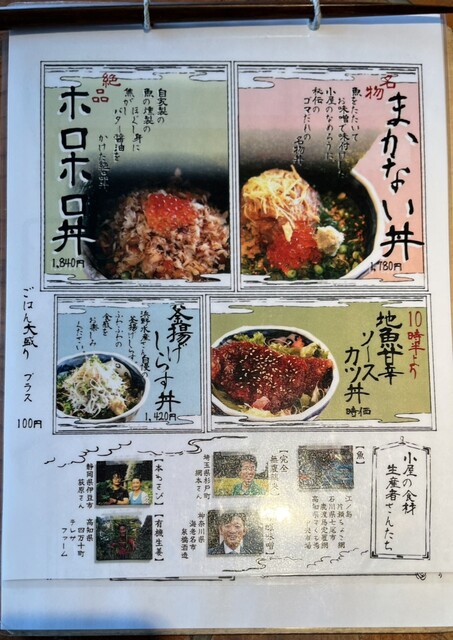 名物
まかない丼
魚をたたいて
お味噌で味付けした
小屋のなめろうに
秘伝の
ゴマだれの
名物丼
1,780円
絶品
ホロホロ丼
自家製の
魚の燻製の
ほぐし身に
焦がし
バター醤油を
かけた
1,840円
10時半より
地魚甘辛
ソース
カツ丼
時価
釜揚げ
しらす丼
浜野水産さん自慢の
釜揚げしらす
ふわふわの
食感を
お楽しみ
ください
1,420円
ごはん大盛り プラス
100円
小屋の食材
生産者さんたち
【魚】
江ノ島
片瀬
石川県七尾市
鹿渡島定置網
高知県
【完全
埼玉県杉戸町
神奈川県
海老名市
泉橋酒造
【本わさび】
静岡県伊豆市
荻原さん
【有機生姜】
高知県
四万十町
ファーム